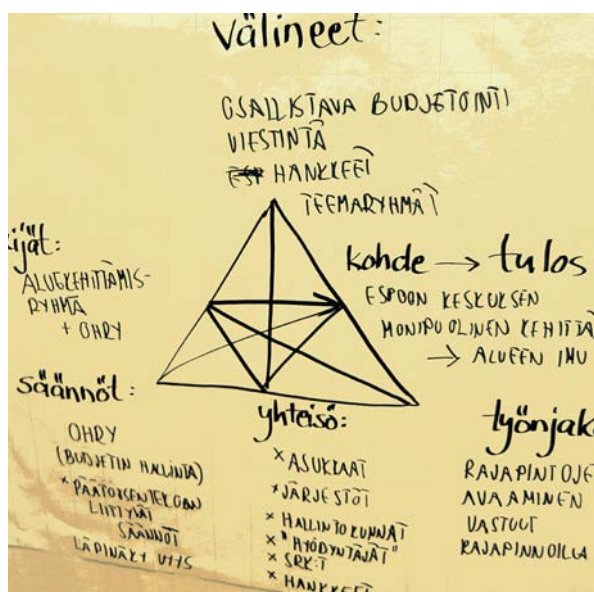 välineet:
OSALLISTAVA BUDJETOINTI
VIESTINTÄ
HANKKEET
TEEMARYHMÄT
ijät:
ALUEKEHITTÄMIS-
RYHMÄ
+ OHRY
kohde → tulos
ESPOON KESKUKSEN
MONIPUOLINEN KEHITTÄ
→ ALUEEN IMU
säännöt:
OHRY
(BUDJETIN HALLINTA)
* PÄÄTÖKSENTEKOON
LIITTYVÄT
SÄÄNNÖT
LÄPINÄKYVYYS
yhteisö:
× ASUKKAAT
× JÄRJESTÖT
× HALLINTOKUNNAT
× "HYÖDYNTÄJÄT"
× SRK:T
× HANKKEET
työnjak
RAJAPINTOJE
AVAAMINEN
VASTUUT
RAJAPINNOILLA